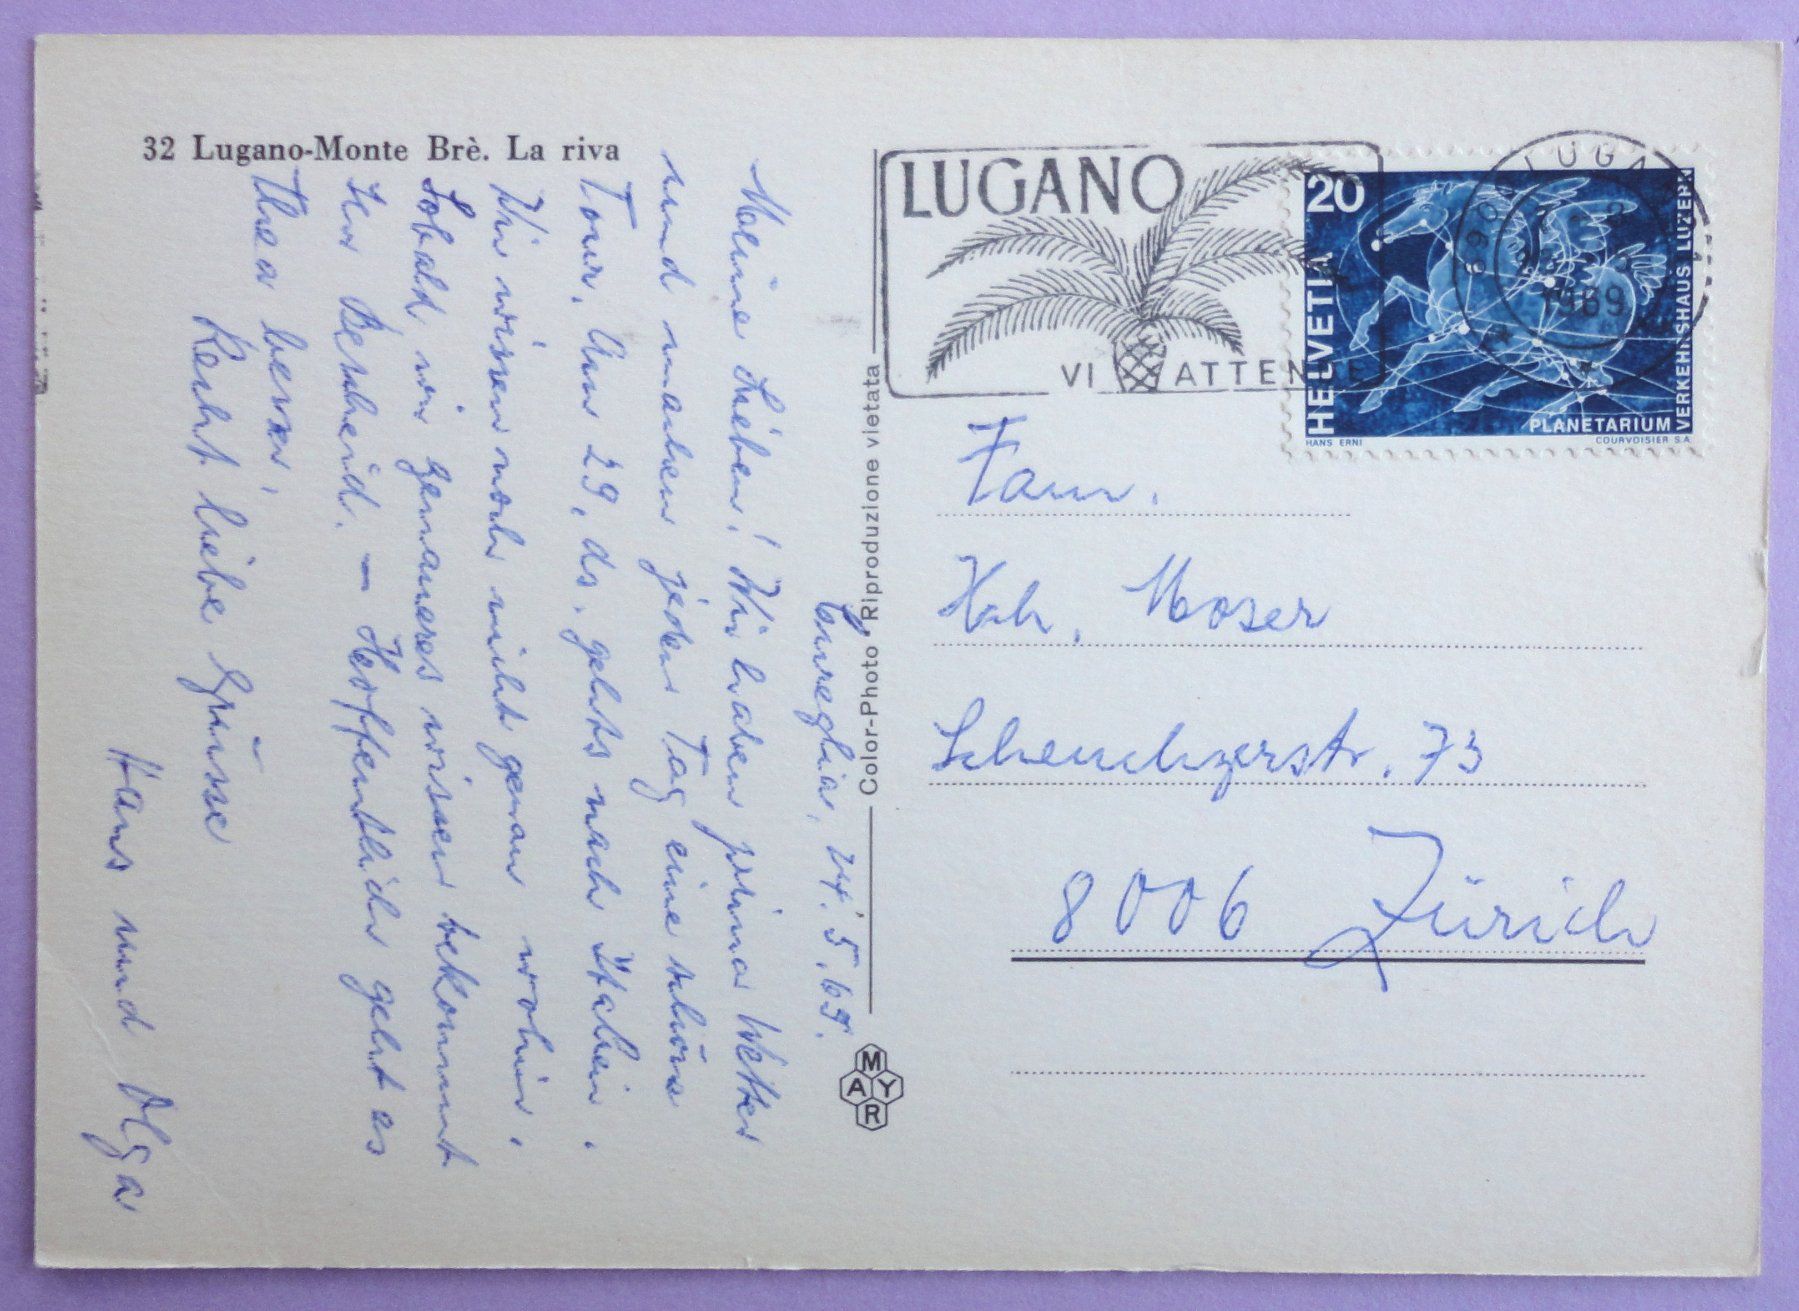 32 Lugano-Monte Brè. La riva
Cureglia, 24.5.69.
Meine Lieben! Wir haben prima Wetter
und machen jeden Tag eine schöne
Tour. Am 29. ds. gehts nach Italien.
Wir wissen noch nicht genau wohin.
Sobald wir genaueres wissen bekommt
Ihr Bescheid. – Hoffentlich geht es
Thea besser.
Recht liebe Grüsse
Hans und Olga
Color-Photo • Riproduzione vietata
MAYR
LUGANO
VI ATTENDE
LUGANO
1969
20
HELVETIA
PLANETARIUM
VERKEHRSHAUS LUZERN
HANS ERNI
COURVOISIER S.A.
Fam.
Hch. Moser
Scheuchzerstr. 73
8006 Zürich